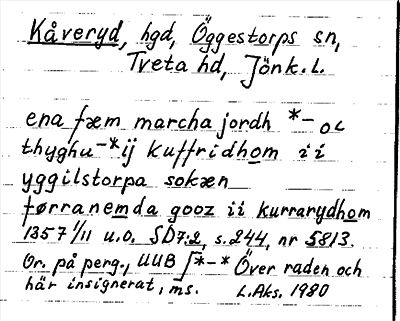 Kåveryd, hgd, Öggestorps sn,
Tveta hd, Jönk. l.
ena fæm marcha jordh *- oc
thyghu -* ij kuffridhom i i
yggilstorpa sokæn
førranemda gooz ii kurrarydhom
1357 1/11 u.o. SD7:2, s.244, nr 5813.
Or. på perg., UUB [*-* Över raden och
här insignerat, ms. L.Aks. 1980